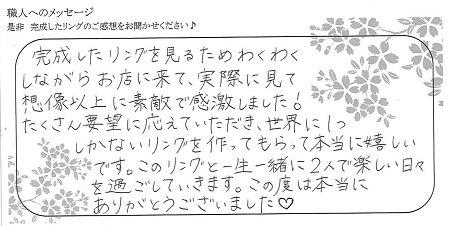 職人へのメッセージ
是非 完成したリングのご感想をお聞かせください♪
完成したリングを見るためわくわく
しながらお店に来て、実際に見て
想像以上に素敵で感激しました!
たくさん要望に応えていただき、世界に1つ
しかないリングを作ってもらって本当に嬉しい
です。このリングと一生一緒に2人で楽しい日々
を過ごしていきます。この度は本当に
ありがとうございました♡